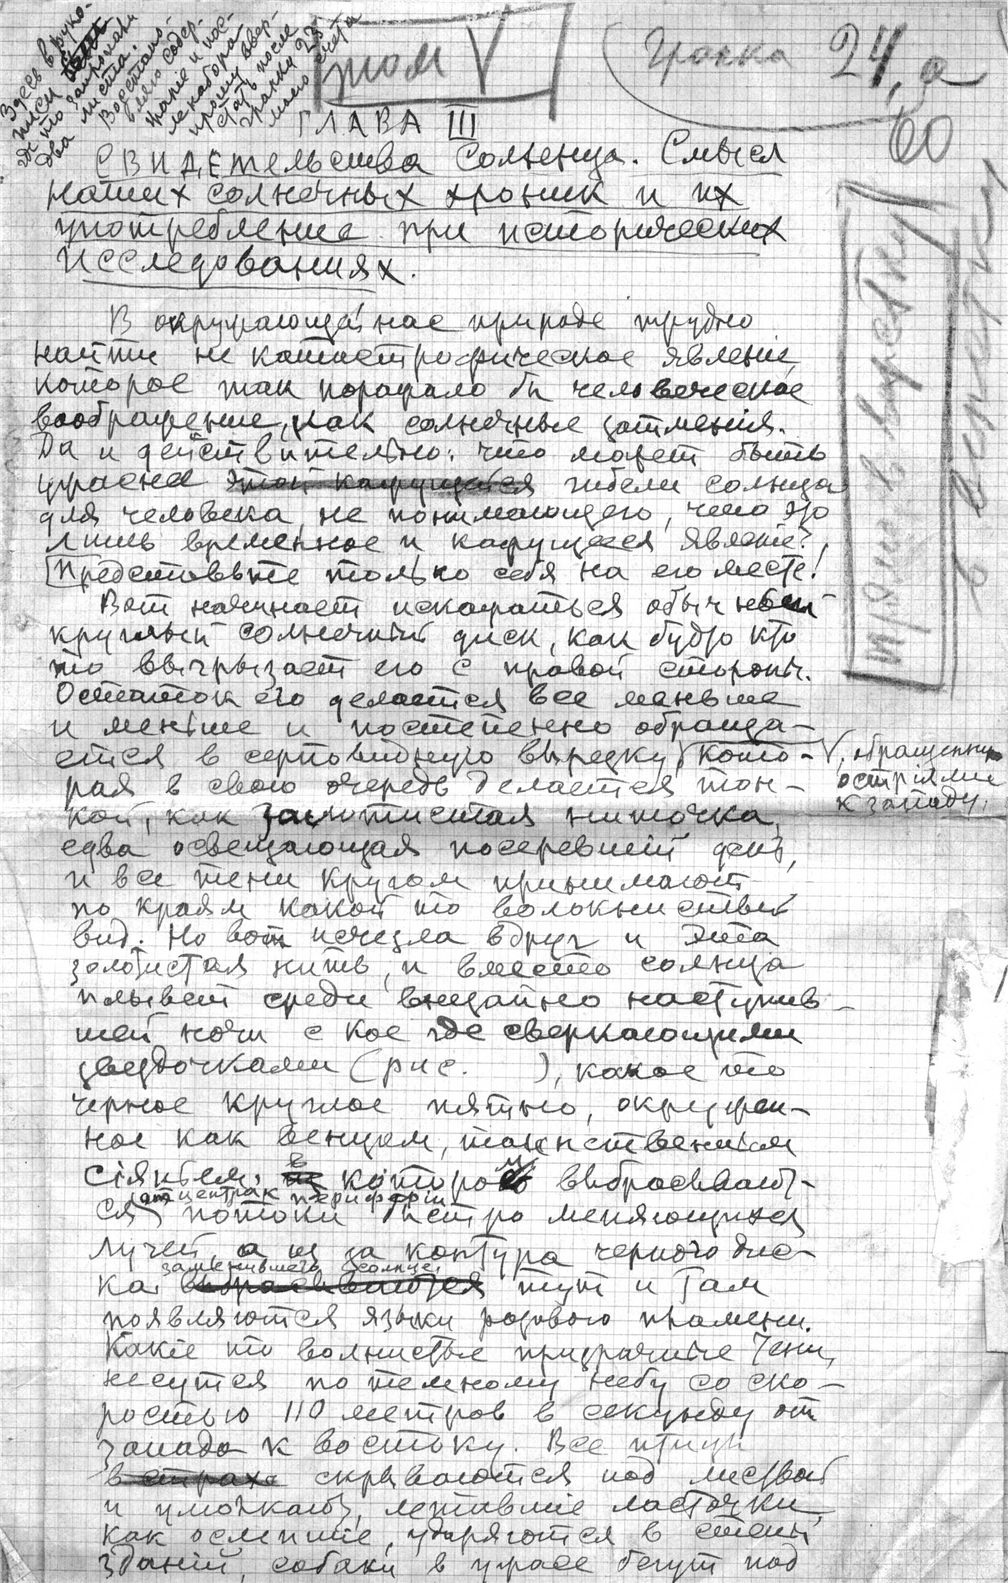 Здесь в руко-
писи
что затеряны
два листа.
Возстано-
вляю содер-
жание и пос-
прошу ввер-
стать после
гранки 23
моего счета
том V
Гранка 24, а
60
ГЛАВА III
Свидетельства Солнца. Смысл
наших солнечных хроник и их
употребление при исторических
исследованиях.
прямо в верстку
В окружающей нас природе трудно
найти не катастрофическое явление,
которое так поражало бы человеческое
воображение, как солнечные затмения.
Да и действительно: что может быть
ужаснее этой кажущейся гибели солнца
для человека, не понимающего, что это
лишь временное и кажущееся явление?
Представьте только себя на его месте!
Вот начинает искажаться обычный
круглый солнечный диск, как будто кто
то выгрызает его с правой стороны.
Остаток его делается все меньше
и меньше и постепенно обраща-
ется в серповидную вырезку V кото-
V, обращенную
остриями
к западу,
рая в свою очередь делается тон-
кой, как золотистая ниточка,
едва освещающая посеревший день,
и все тени кругом принимают
по краям какой то волокнистый
вид. Но вот исчезла вдруг и эта
золотистая нить, и вместо солнца
плывет среди внезапно наступив-
шей ночи с кое где сверкающими
звездочками (рис.      ), какое то
черное круглое пятно, окружен-
ное как венцом, таинственным
сіяньем, в котором выбрасывают-
от центра к периферіи
ся потоки быстро меняющихся
лучей, а из за контура черного дис-
заменившего солнце,
ка выбрасываются тут и там
появляются языки розового пламени.
Какіе то волнистые призрачные тени,
несутся по темному небу со ско-
ростью 110 метров в секунду от
запада к востоку. Все птицы
в страхе скрываются под листвой
и умолкают, летавшіе ласточки,
как ослепшіе, ударяются в стены
зданій, собаки в ужасе бегут под